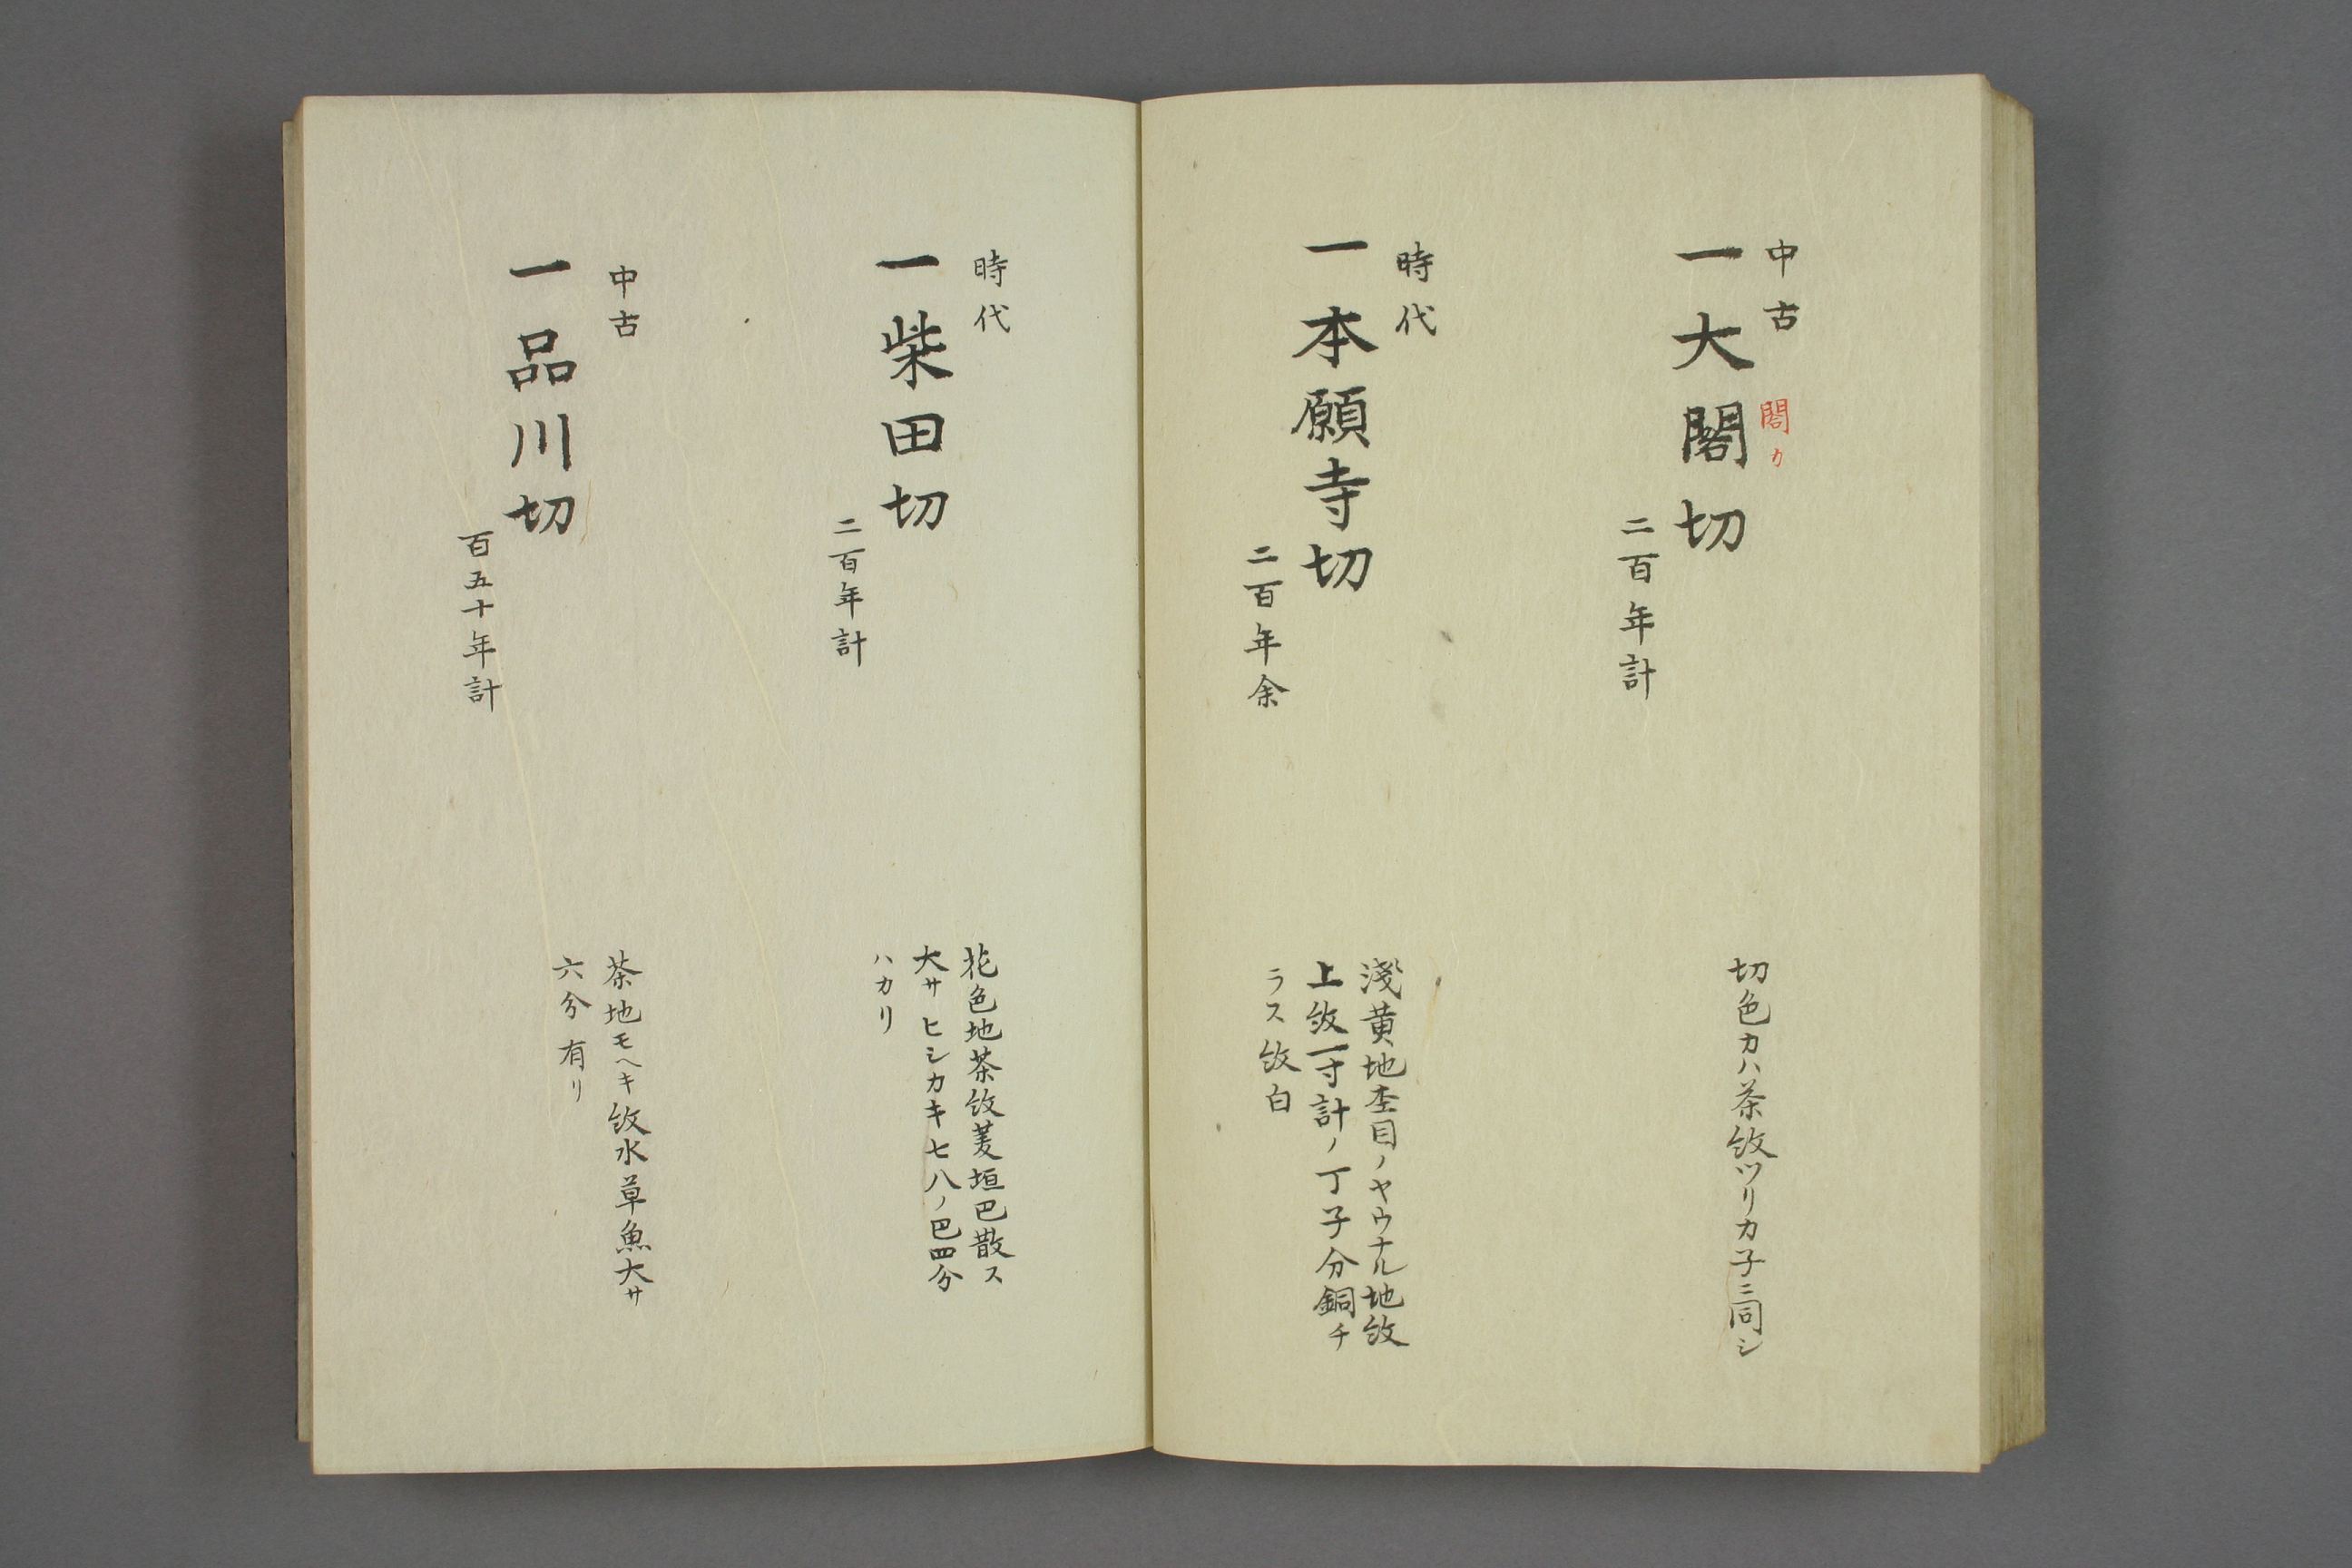 中古
閤カ
一大閣切
二百年計
切色カハ茶紋ツリカ子ニ同シ
時代
一本願寺切
二百年余
淺黄地杢目ノヤウナル地紋
上紋一寸計ノ丁子分銅チ
ラス紋白
時代
一柴田切
二百年計
花色地茶紋菱垣巴散ス
大サヒシカキ七八ノ巴四分
ハカリ
中古
一品川切
百五十年計
茶地モヘキ紋水草魚大サ
六分有リ